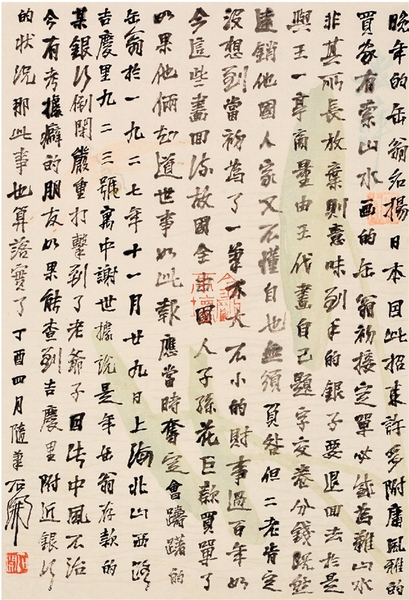 晚年的缶翁名揚日本因此招來許多附庸風雅的
買家有索山水画的缶翁初接定單必為難山水
非其所長放棄則意味到手的銀子要退回去於是
與王一亭商量由王代畫自己題字交卷分錢既然
遠銷他國人家又不懂自也無須負咎但二老肯定
沒想到當初為了一筆不大不小的財事過百年如
今這些畫回流故國全國人子孫花巨款買單了
如果他倆知道世事如此報應當時定會躊躇的
缶翁於一九二七年十一月廿九日上海北山西路
吉慶里九二三號寓中謝世據說是年缶翁存款的
某銀行倒閉嚴重打擊到了老爺子因此中風不治
今有考據癖的朋友如果能查到吉慶里附近銀行
的狀況那此事也算證實了丁酉四月隨筆石開